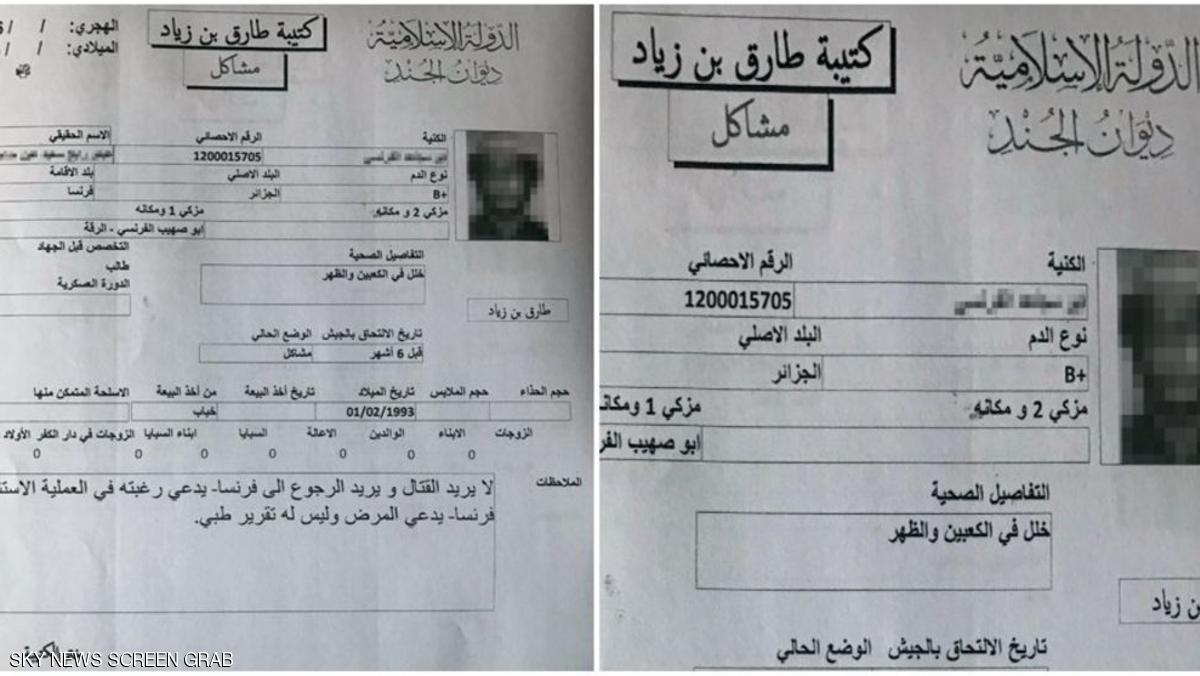 الهجري: / /
الميلادي: / /
كتيبة طارق بن زياد
مشاكل
الدولة الإسلامية
ديوان الجند
الكنية
الرقم الاحصائي
الاسم الحقيقي
1200015705
نوع الدم
البلد الاصلي
بلد الاقامة
B+
الجزائر
فرنسا
مزكي 2 و مكانه
مزكي 1 ومكانه
ابو صهيب الفرنسي - الرقة
التفاصيل الصحية
التخصص قبل الجهاد
خلل في الكعبين والظهر
طالب
الدورة العسكرية
طارق بن زياد
تاريخ الالتحاق بالجيش
الوضع الحالي
قبل 6 أشهر
مشاكل
حجم الحذاء
حجم الملابس
تاريخ الميلاد
تاريخ أخذ البيعة
من أخذ البيعة
الاسلحة المتمكن منها
01/02/1993
خباب
الزوجات
الابناء
الوالدين
الاعالة
السبايا
ابناء السبايا
الزوجات في دار الكفر
الأولاد
0 0 0 0 0 0 0
الملاحظات
لا يريد القتال و يريد الرجوع الى فرنسا- يدعي رغبته في العملية
فرنسا- يدعي المرض وليس له تقرير طبي.
SKY NEWS SCREEN GRAB
كتيبة طارق بن زياد
مشاكل
الدولة الإسلامية
ديوان الجند
الكنية
الرقم الاحصائي
1200015705
نوع الدم
البلد الاصلي
B+
الجزائر
مزكي 2 و مكانه
مزكي 1 ومكان
ابو صهيب الفر
التفاصيل الصحية
خلل في الكعبين والظهر
ن زياد
تاريخ الالتحاق بالجيش
الوضع الحالي